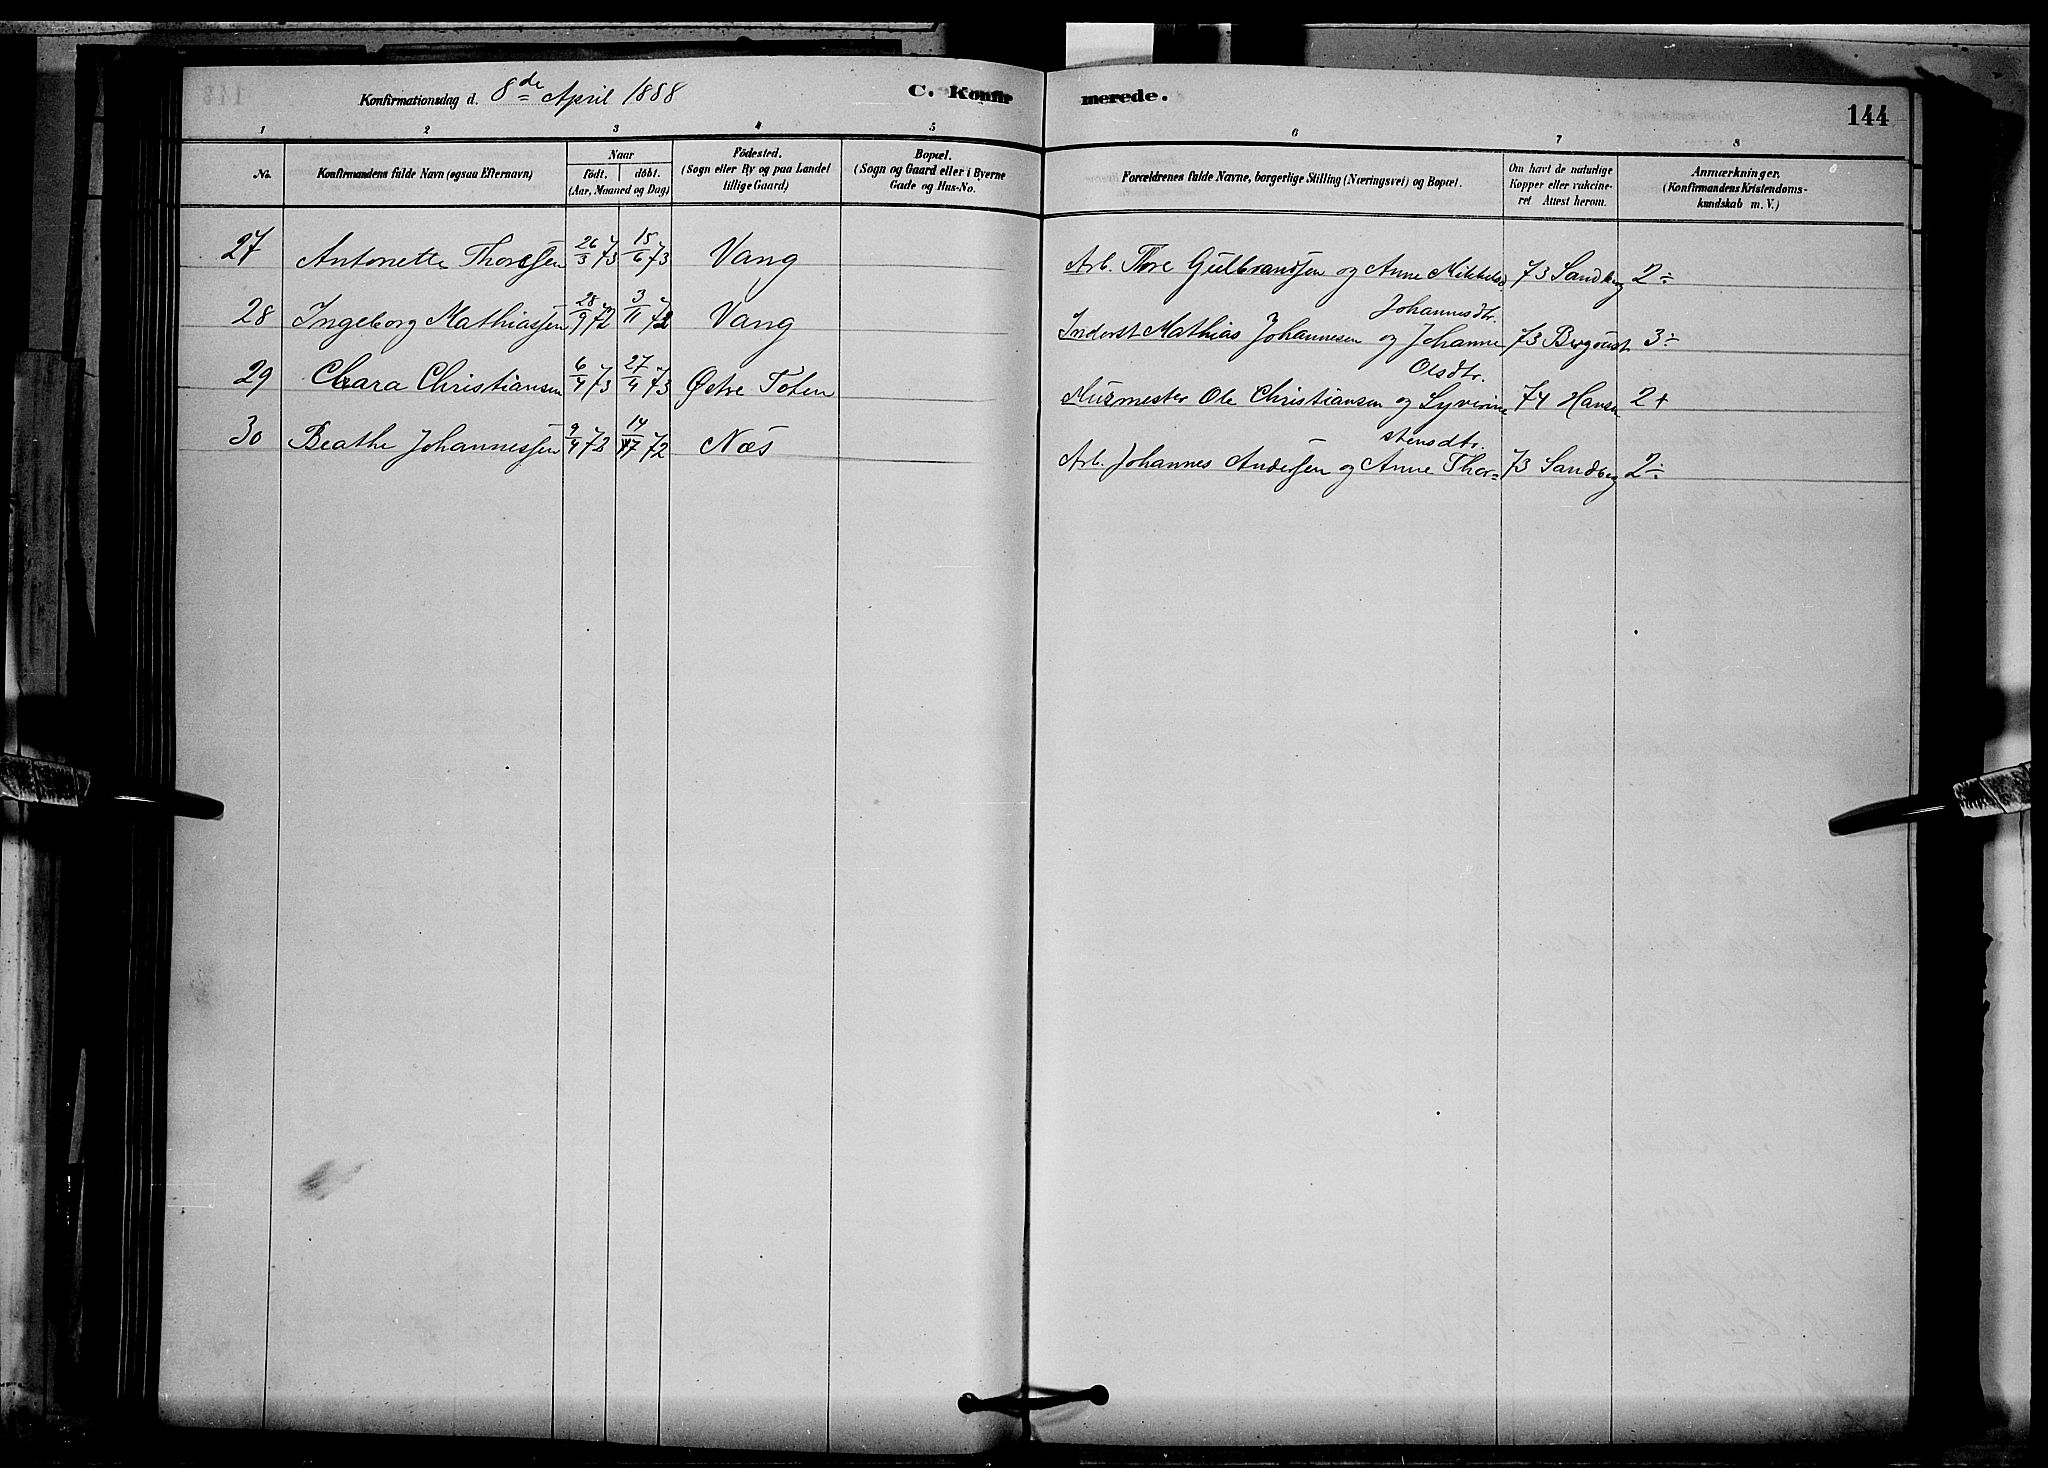 Konfirmationsdag d. 8de April 1888 C. Konfirmerede. 144
1 2 3 4 5 6 7 8
No. Konfirmandens fulde Navn (ogsaa Efternavn) Naar födt. döbt. (Aar, Maaned og Dag) Födested. (Sogn eller By og paa Landet tillige Gaard) Bopæl. (Sogn og Gaard eller i Byerne Gade og Hus-No. Forældrenes fulde Navne, borgerlige Stilling (Næringsvei) og Bopæl. Om havt de naturlige Kopper eller vakcineret Attest herom. Anmærkninger. (Konfirmandens Kristendomskundskab m. V.)
27 Antonette Thoresen 26/3 73 15/6 73 Vang Arb. Thore Gulbrandsen og Anne Mikkelsd. 73 Sandberg 2÷
28 Ingeborg Mathiassen 28/9 72 3/11 72 Vang Inderst Mathias Johannesen og Johanne Johannesdtr. 73 3÷
29 Clara Christiansen 6/4 73 27/4 73 Østre Toten Murmester Ole Christiansen og Syverine Olsdtr. 74 Hansen 2+
30 Beathe Johannessen 9/4 72 14/7 72 Næs Arb. Johannes Andersen og Anne Thorstensdtr. 73 Sandberg 2÷